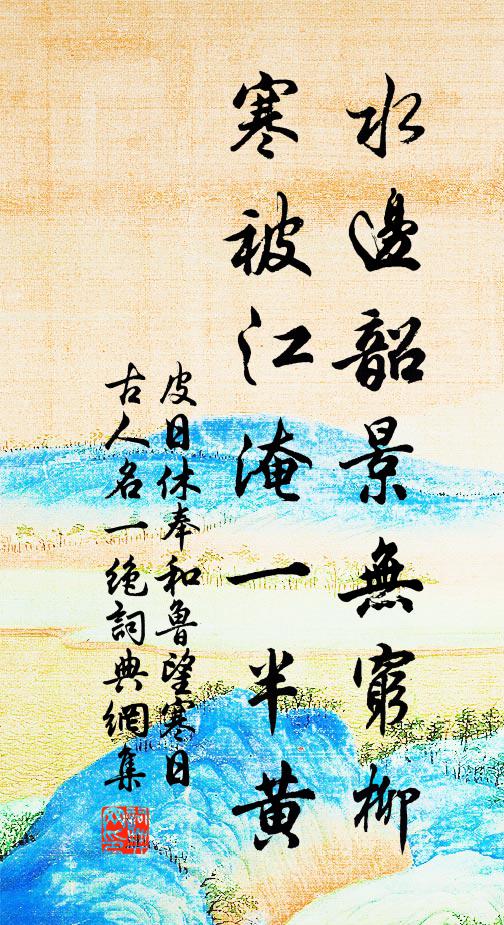 水邊韶景無窮柳
寒被江淹一半黃
皮日休奉和魯望寒日
古人名一絶詞典網集